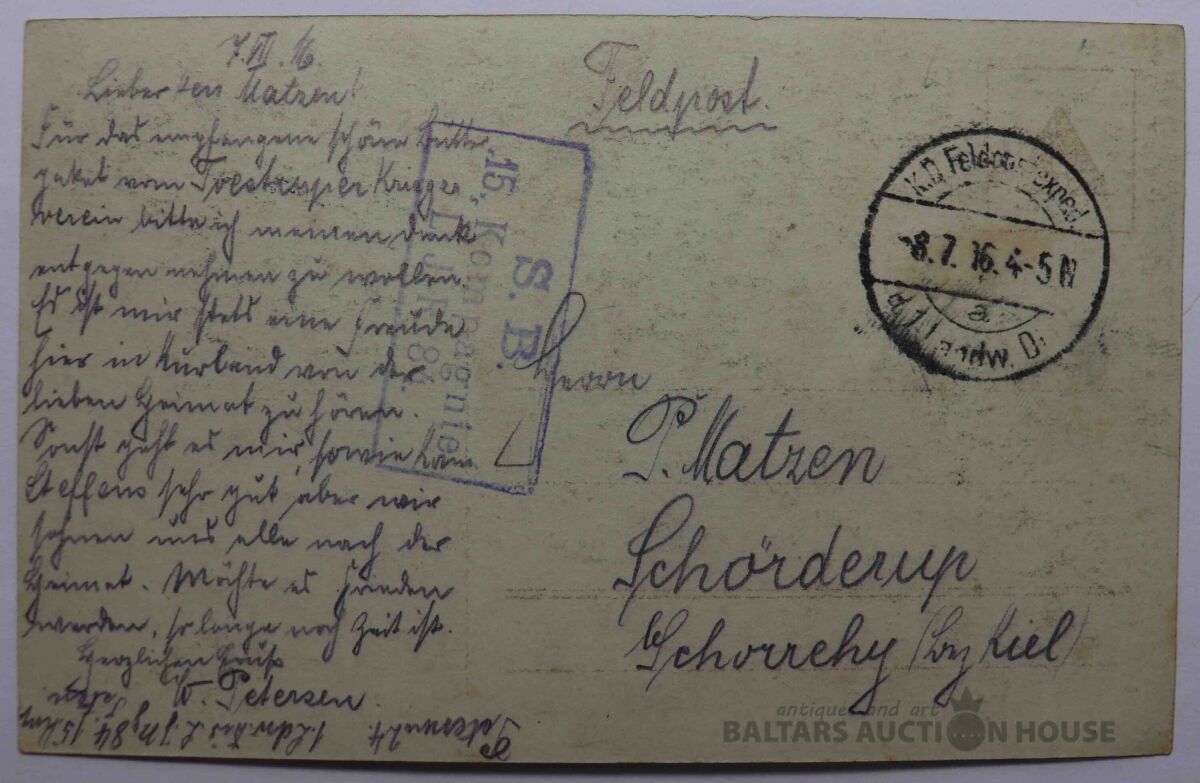 7. VII. 16.
Lieber Matzen!
Für das empfangene schöne Butter
paket vom Toestruper Krieger
verein bitte ich meinen Dank
entgegen nehmen zu wollen.
Es ist mir stets eine Freude
hier in Kurland von der
lieben Heimat zu hören.
Sonst geht es mir, sowie Kam
Steffens sehr gut, aber wir
sehnen uns alle nach der
Heimat. Möchte es Frieden
werden, so lange noch Zeit ist.
Herzlichen Gruß
W. Petersen.
Feldpost.
S. B.
15. Kompagnie
L. J. R. 84.
K.D. Feldpostexped.
-8.7.16. 4-5 N
a
d. 1. Landw. D.
Herrn
P. Matzen
Schörderup
antiques and art
BALTARS AUCTION HOUSE